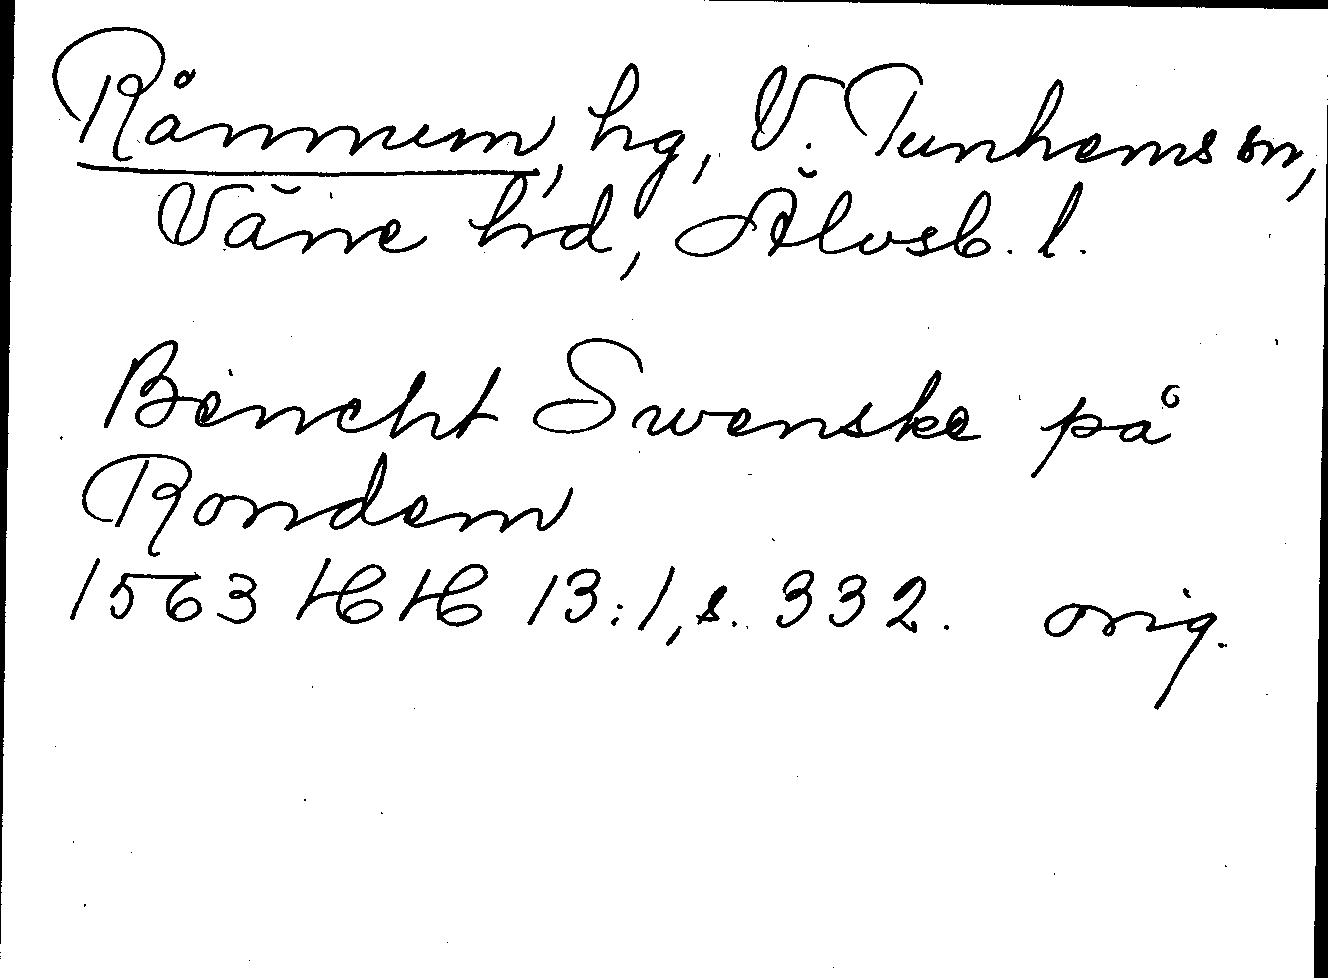 Rånnum, hg, V. Tunhems sn,
Väne hd, Älvsb. l.
Bencht Swenske på
Rondem
1563 HH 13:1, s. 332. orig.